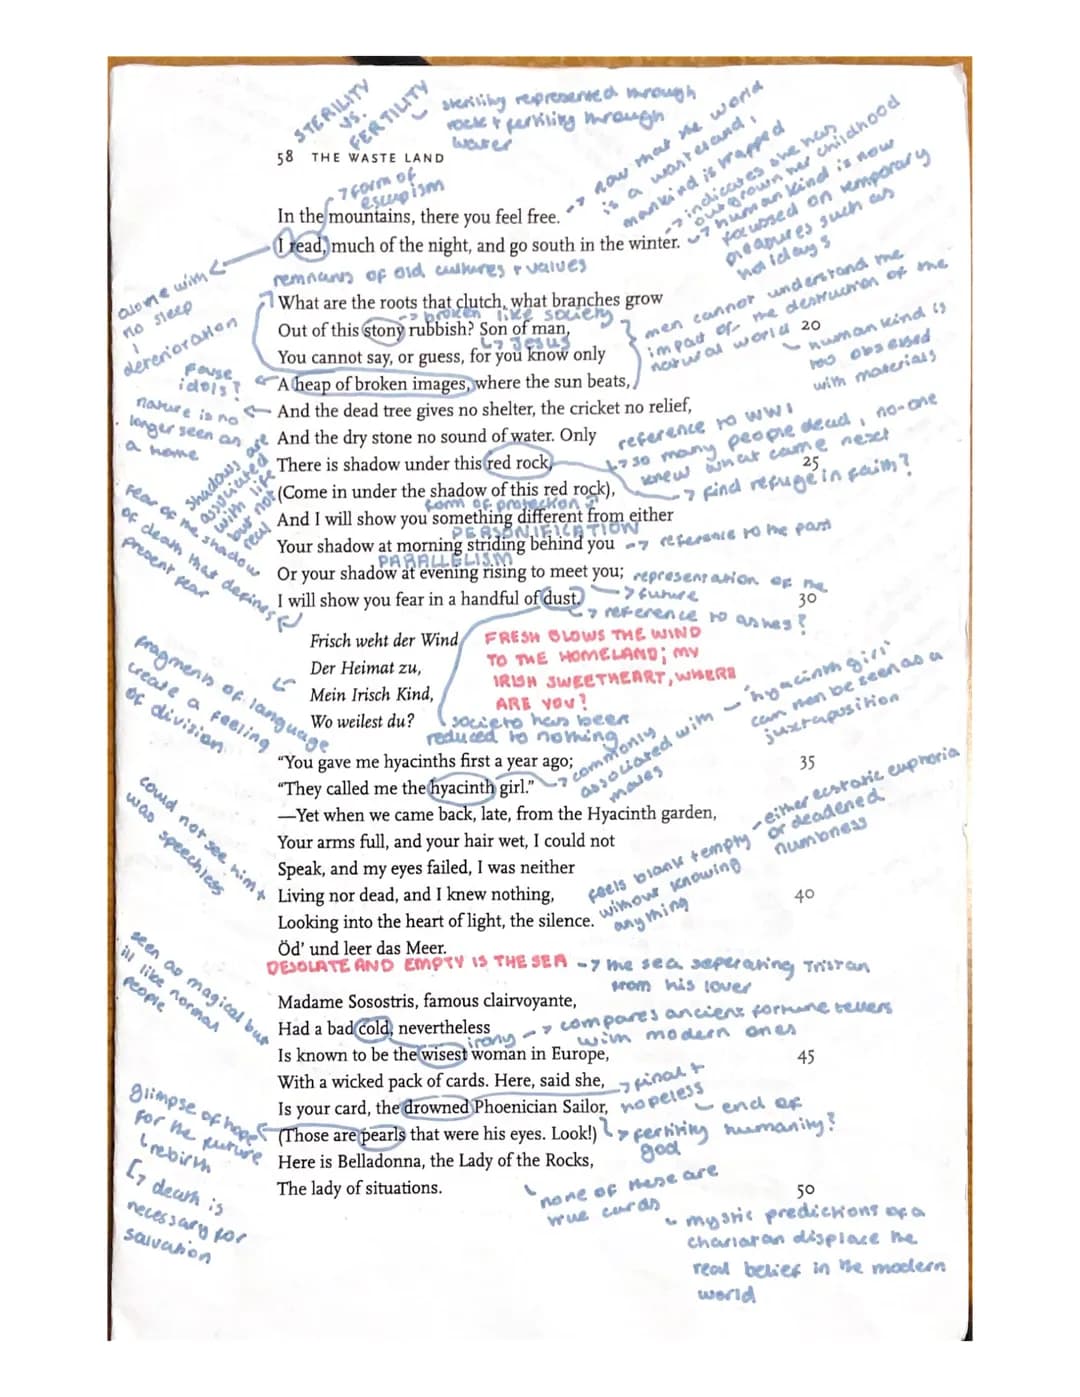 STERILITY
VS.
FERTILITY
sterility represented through
rock & fertility through
water
58 THE WASTE LAND
form of
escapism
now that the world
is a wasteland,
mankind is trapped
In the mountains, there you feel free.
I read, much of the night, and go south in the winter.
indicates she has
outgrown her childhood
human kind is now
focussed on temporary
pleasures such as
holidays
alone with
no sleep
deterioration
remnants of old cultures & values
What are the roots that clutch, what branches grow
broken like society
Out of this stony rubbish? Son of man, 20
Jesus
You cannot say, or guess, for you know only
A heap of broken images, where the sun beats,
men cannot understand the
impact of the destruction of the
natural world
human kind is
too obsessed
with materials
false
idols?
And the dead tree gives no shelter, the cricket no relief,
nature is no
longer seen as
a home
And the dry stone no sound of water. Only
There is shadow under this red rock, 25
reference to WW1
so many people dead, no-one
knew what came next
(Come in under the shadow of this red rock),
find refuge in faith?
form of protection?
shadows are
associated
with life
but not
real
And I will show you something different from either
PERSONIFICATION
Your shadow at morning striding behind you
reference to the past
PARALLELISM
Or your shadow at evening rising to meet you;
representation of the
future
I will show you fear in a handful of dust. 30
reference to ashes?
fear of the shadow
of death that defines
present fear
Frisch weht der Wind
Der Heimat zu,
Mein Irisch Kind,
Wo weilest du?
FRESH BLOWS THE WIND
TO THE HOMELAND; MY
IRISH SWEETHEART, WHERE
ARE YOU?
fragments of language
create a feeling
of division
society has been
reduced to nothing
"You gave me hyacinths first a year ago; 35
"They called me the hyacinth girl."
commonly
associated with
males
'hyacinth girl'
can then be seen as a
juxtaposition
—Yet when we came back, late, from the Hyacinth garden,
Your arms full, and your hair wet, I could not
Speak, and my eyes failed, I was neither
Living nor dead, and I knew nothing, 40
Looking into the heart of light, the silence.
could not see him &
was speechless
feels blank & empty
without knowing
anything
either ecstatic euphoria
or deadened
numbness
Öd' und leer das Meer.
DESOLATE AND EMPTY IS THE SEA
the sea seperating Tristan
from his lover
Madame Sosostris, famous clairvoyante,
Had a bad cold, nevertheless
irony
compares ancient fortune tellers
with modern ones
seen as magical but
ill like normal
people
Is known to be the wisest woman in Europe, 45
With a wicked pack of cards. Here, said she,
Is your card, the drowned Phoenician Sailor,
final &
hopeless
end of
humanity?
(Those are pearls that were his eyes. Look!)
fertility
god
glimpse of hope
for the future
rebirth
death is
necessary for
salvation
Here is Belladonna, the Lady of the Rocks,
The lady of situations. 50
none of these are
true cards
mystic predictions of a
charlatan displace the
real belief in the modern
world